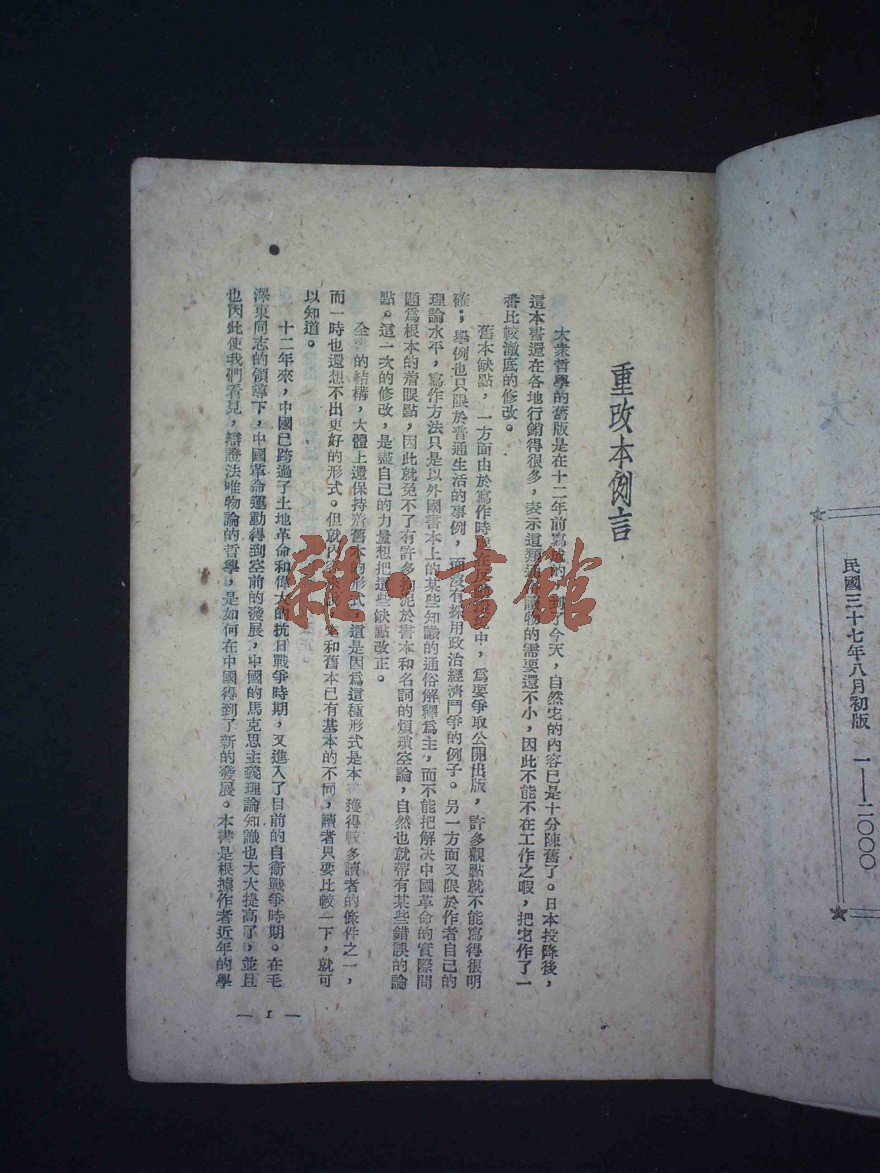 民國三十七年八月初版 一—二〇〇〇
大
重改本例言
大衆哲學的舊版是在十二年前寫成的 到了今天，自然它的內容已是十分陳舊了。日本投降後，
這本書還在各地行銷得很多，表示這類 讀物的需要還不小，因此不能不在工作之暇，把它作了一
番比較澈底的修改。
舊本缺點，一方面由於寫作時 中，爲要爭取公開出版，許多觀點就不能寫得很明
確；舉例也只限於普通生活的事例， 沒有採用政治經濟鬥爭的例子。另一方面又限於作者自己的
理論水平，寫作方法只是以外國書本上的某些知識的通俗解釋爲主，而不能把解决中國革命的實際問
題爲根本的着眼點，因此就免不了有許多拘泥於書本和名詞的煩瑣空論，自然也就帶有某些錯誤的論
點。這一次的修改，是盡自己的力量想把這些缺點改正。
全 的結構，大體上還保持着舊本的形式，這是因爲這種形式是本 獲得較多讀者的條件之一，
而一時也還想不出更好的形式。但就內 和舊本已有基本的不同，讀者只要比較一下，就可
以知道。
十二年來，中國已跨過了土地革命和偉大的抗日戰爭時期，又進入了目前的自衛戰爭時期。在毛
澤東同志的領導下，中國革命運動得到空前的發展，中國的馬克思主義理論知識也大大提高了，並且
也因此使我們看見，辯證法唯物論的哲學，是如何在中國得到了新的發展。本書是根據作者近年的學
— 1 —
雜·書館